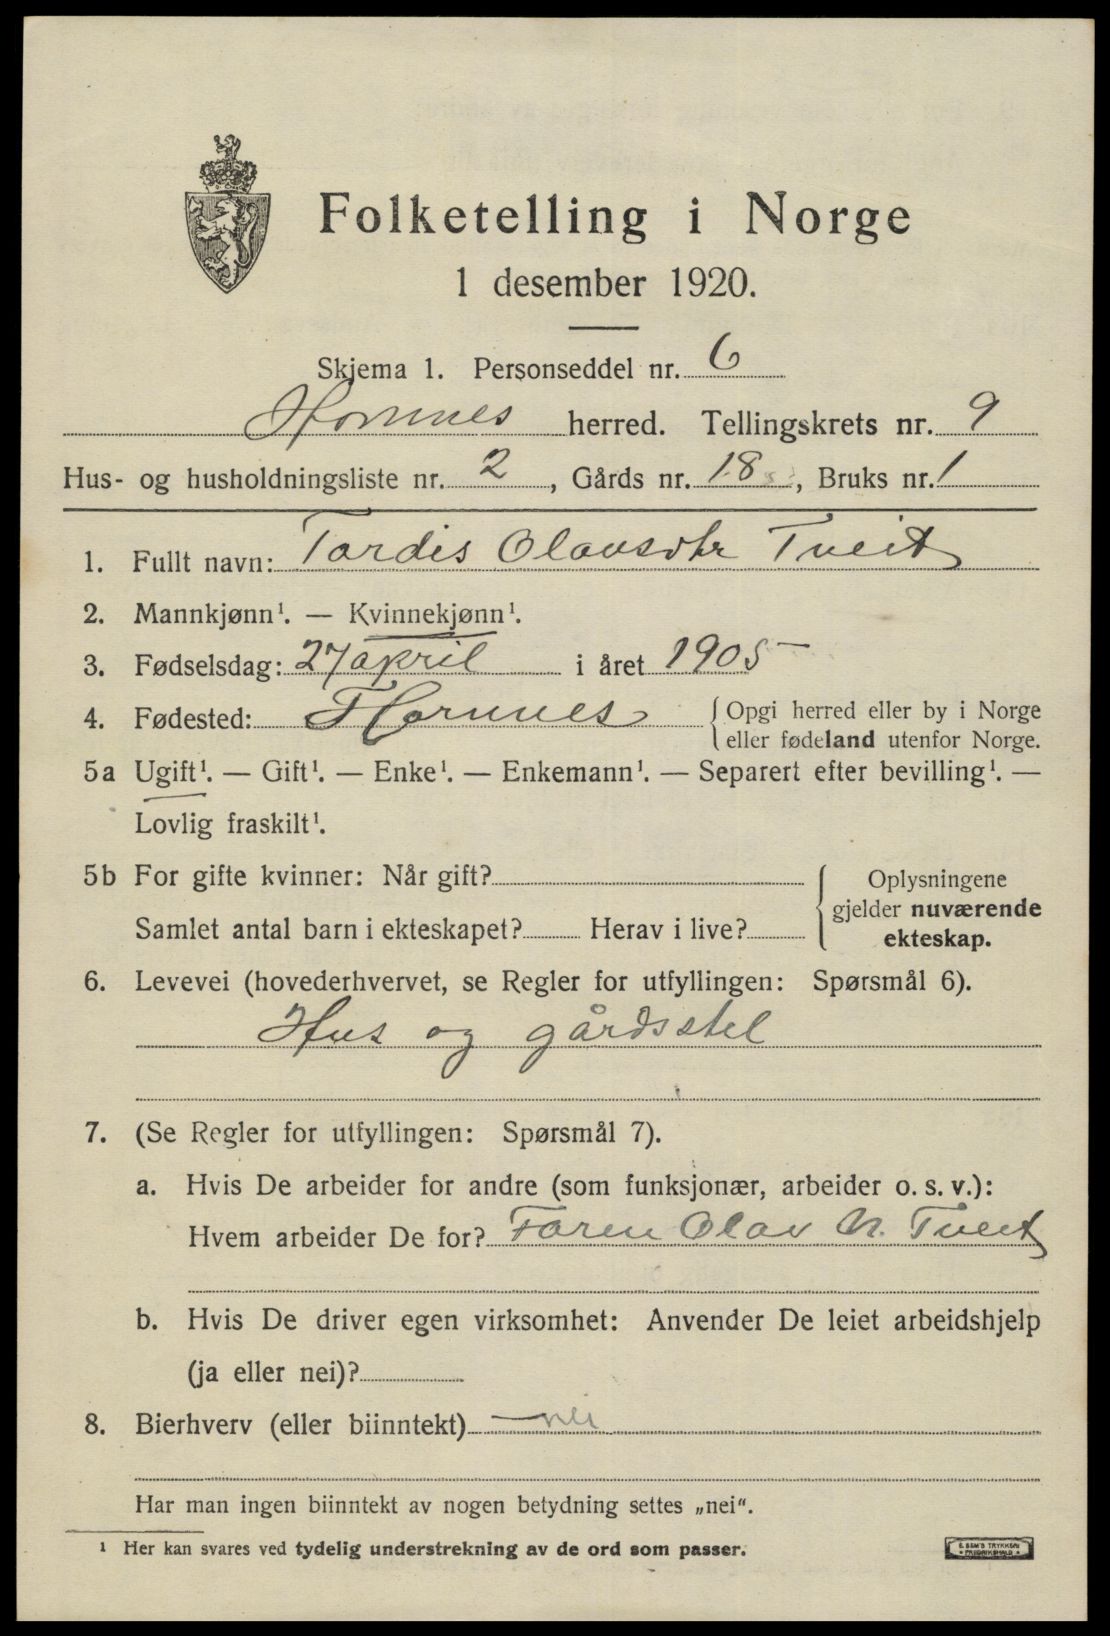 Folketelling i Norge
1 desember 1920.
Skjema 1. Personseddel nr. 6
Hornnes herred. Tellingskrets nr. 9
Hus- og husholdningsliste nr. 2, Gårds nr. 18, Bruks nr. 1
1. Fullt navn: Tordis Olavsdtr Tveit
2. Mannkjønn¹. — Kvinnekjønn¹.
3. Fødselsdag: 27 april i året 1905
4. Fødested: Hornnes { Opgi herred eller by i Norge
eller fødeland utenfor Norge.
5a Ugift¹. — Gift¹. — Enke¹. — Enkemann¹. — Separert efter bevilling¹. —
Lovlig fraskilt¹.
5b For gifte kvinner: Når gift? { Oplysningene
gjelder nuværende
Samlet antal barn i ekteskapet? Herav i live? ekteskap.
6. Levevei (hovederhvervet, se Regler for utfyllingen: Spørsmål 6).
Hus og gårdsstel
7. (Se Regler for utfyllingen: Spørsmål 7).
a. Hvis De arbeider for andre (som funksjonær, arbeider o. s. v.):
Hvem arbeider De for? Faren Olav N. Tveit
b. Hvis De driver egen virksomhet: Anvender De leiet arbeidshjelp
(ja eller nei)?
8. Bierhverv (eller biinntekt) nei
Har man ingen biinntekt av nogen betydning settes „nei".
¹ Her kan svares ved tydelig understrekning av de ord som passer.
E. SEM'S TRYKKERI
• FREDRIKSHALD •